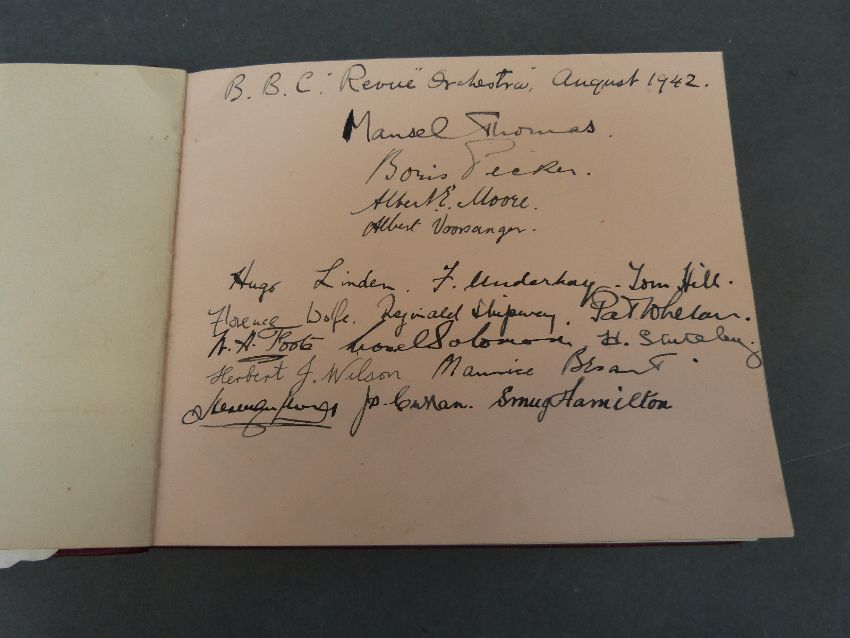 B.B.C. "Revue" Orchestra, August 1942.
Mansel Thomas.
Boris Pecker.
Albert E. Moore.
Albert Voorsanger.
Hugo Linden. F. Underhay. Tom Hill.
Florence Wolfe. Reginald Shipway. Pat Whelan.
A. A. Foote Lionel Solomon. H.
Herbert J. Wilson Maurice Besant.
Jo. Curran. Smug Hamilton